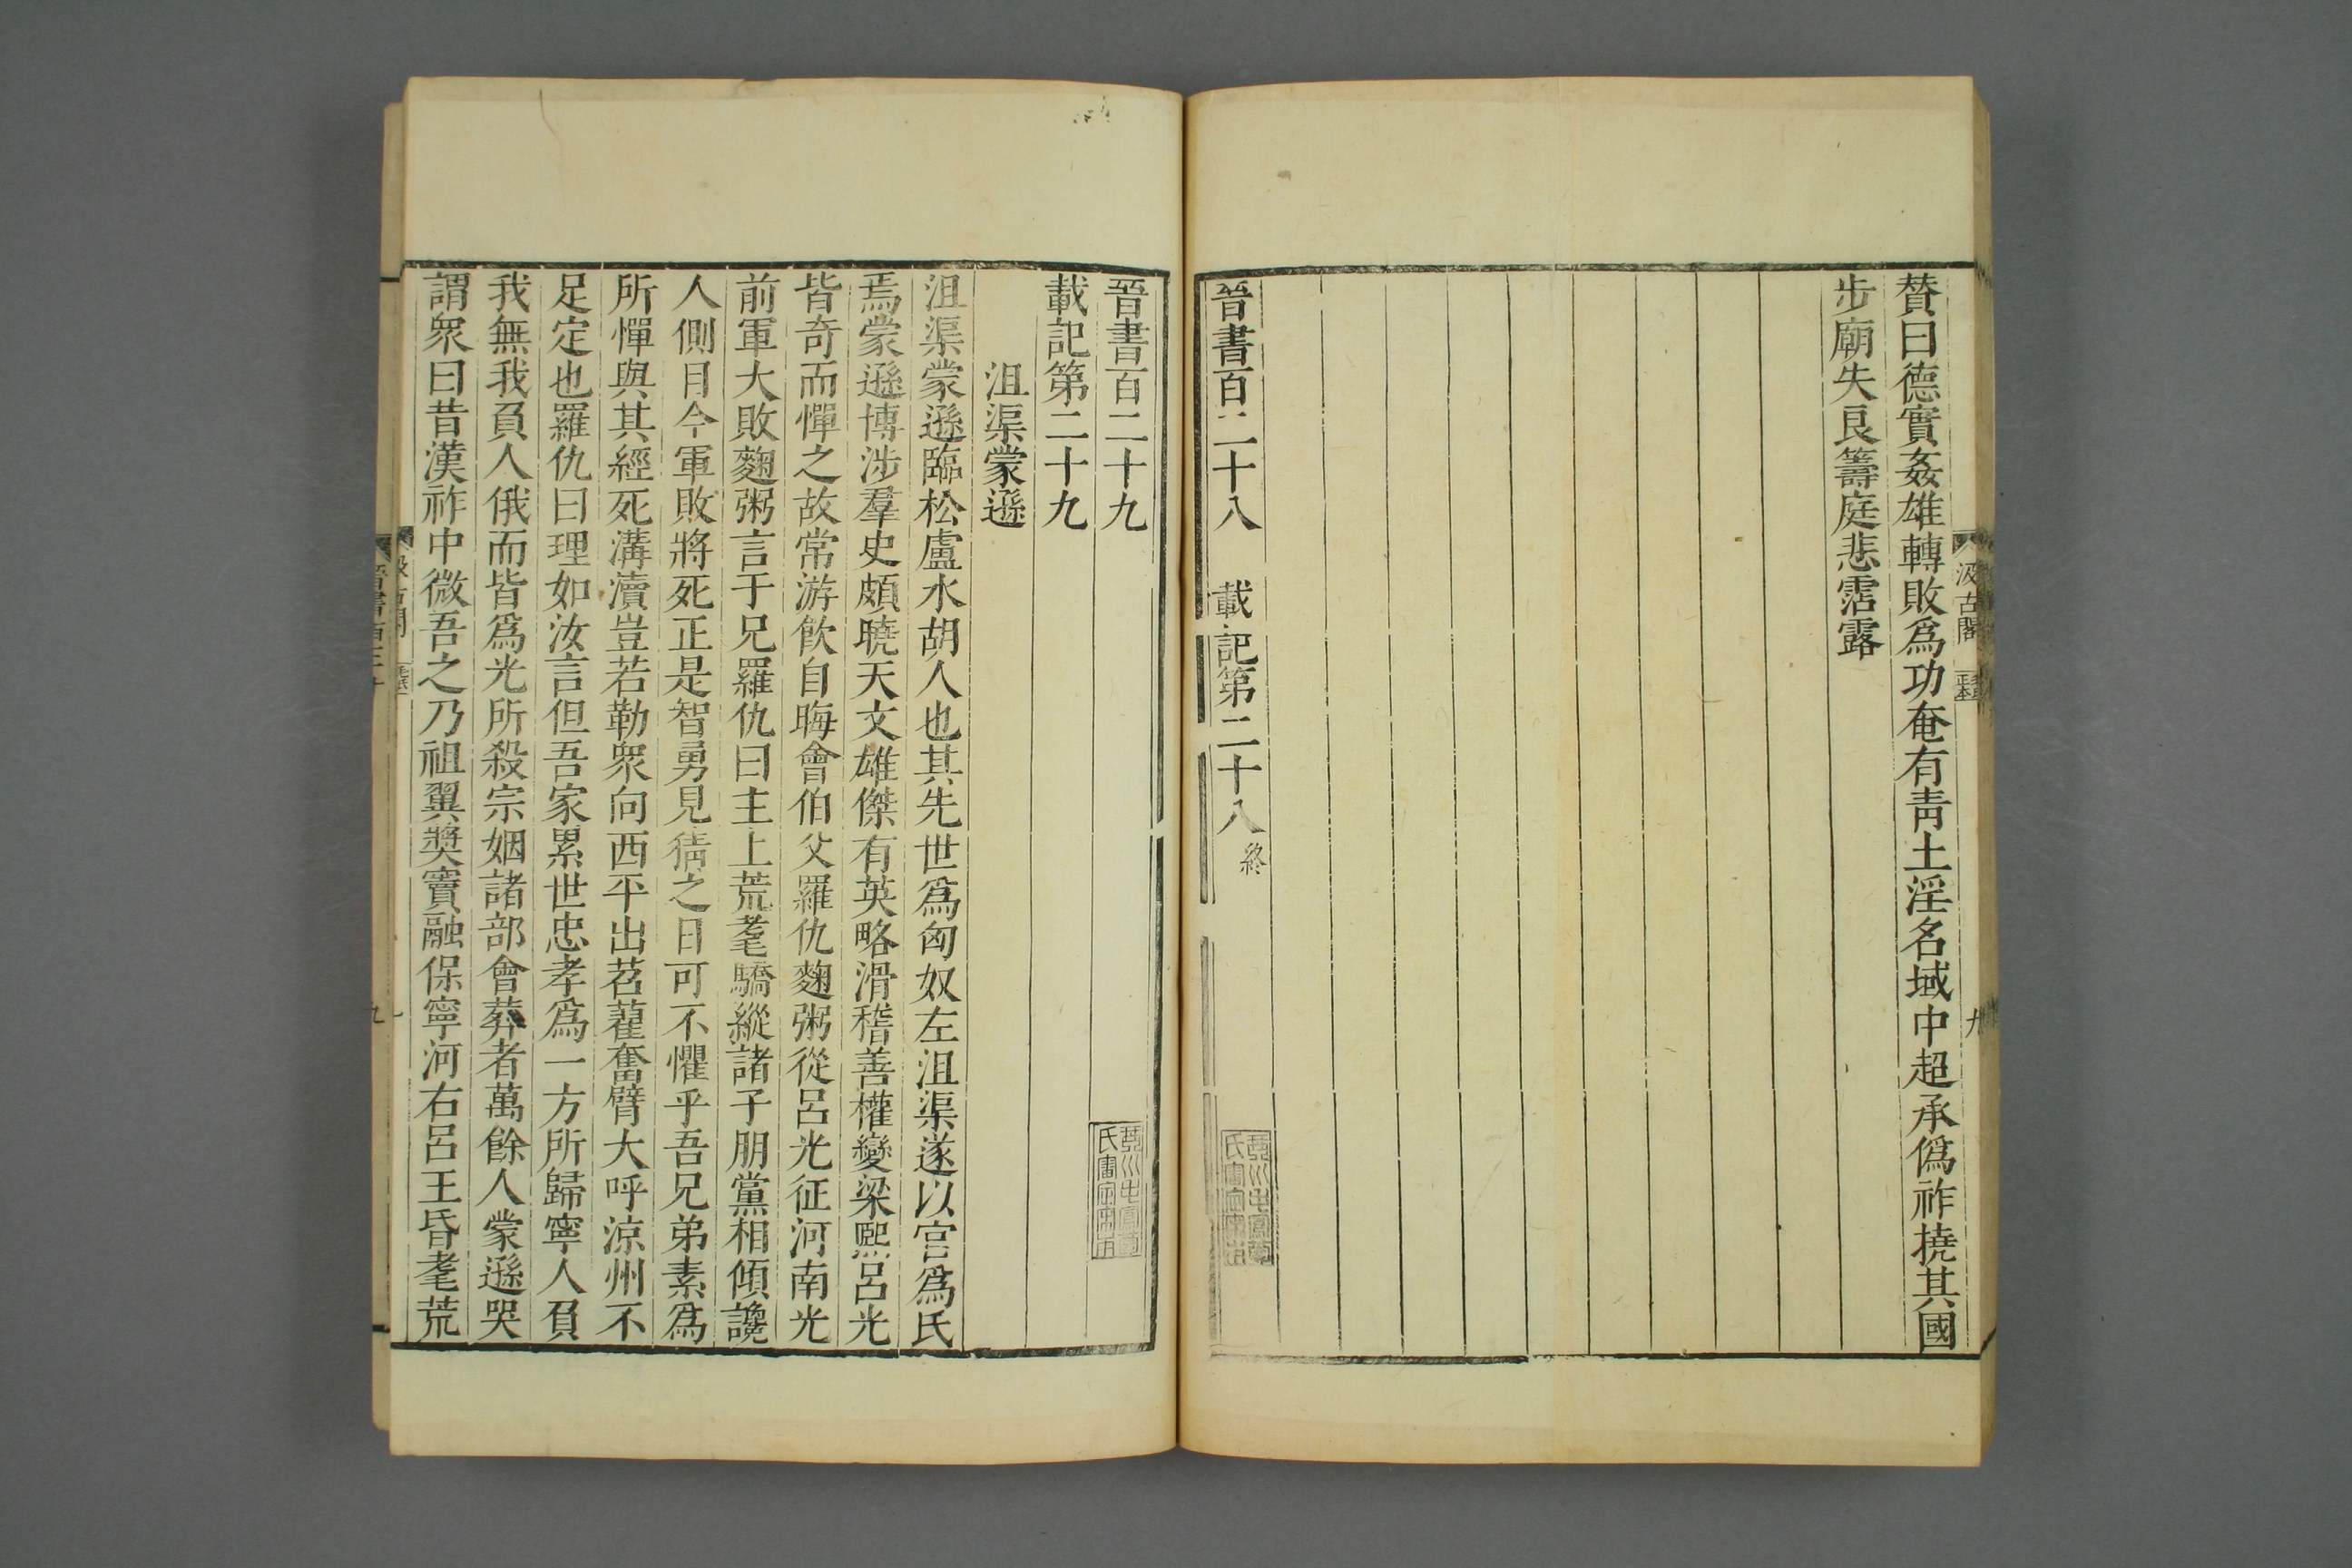 贊曰德實姦雄轉敗爲功奄有靑土淫名域中超承僞祚撓其國
步廟失良籌庭悲霑露
晉書百二十八　載記第二十八終
汲古閣
九
晉書百二十九
載記第二十九
沮渠蒙遜
沮渠蒙遜臨松盧水胡人也其先世爲匈奴左沮渠遂以官爲氏
焉蒙遜博涉羣史頗曉天文雄傑有英略滑稽善權變梁熙呂光
皆奇而憚之故常游飮自晦會伯父羅仇麴粥從呂光征河南光
前軍大敗麴粥言于兄羅仇曰主上荒耄驕縱諸子朋黨相傾讒
人側目今軍敗將死正是智勇見猜之日可不懼乎吾兄弟素爲
所憚與其經死溝瀆豈若勒衆向西平出苕藋奮臂大呼涼州不
足定也羅仇曰理如汝言但吾家累世忠孝爲一方所歸寧人負
我無我負人俄而皆爲光所殺宗姻諸部會葬者萬餘人蒙遜哭
謂衆曰昔漢祚中微吾之乃祖翼奬竇融保寧河右呂王昏耄荒